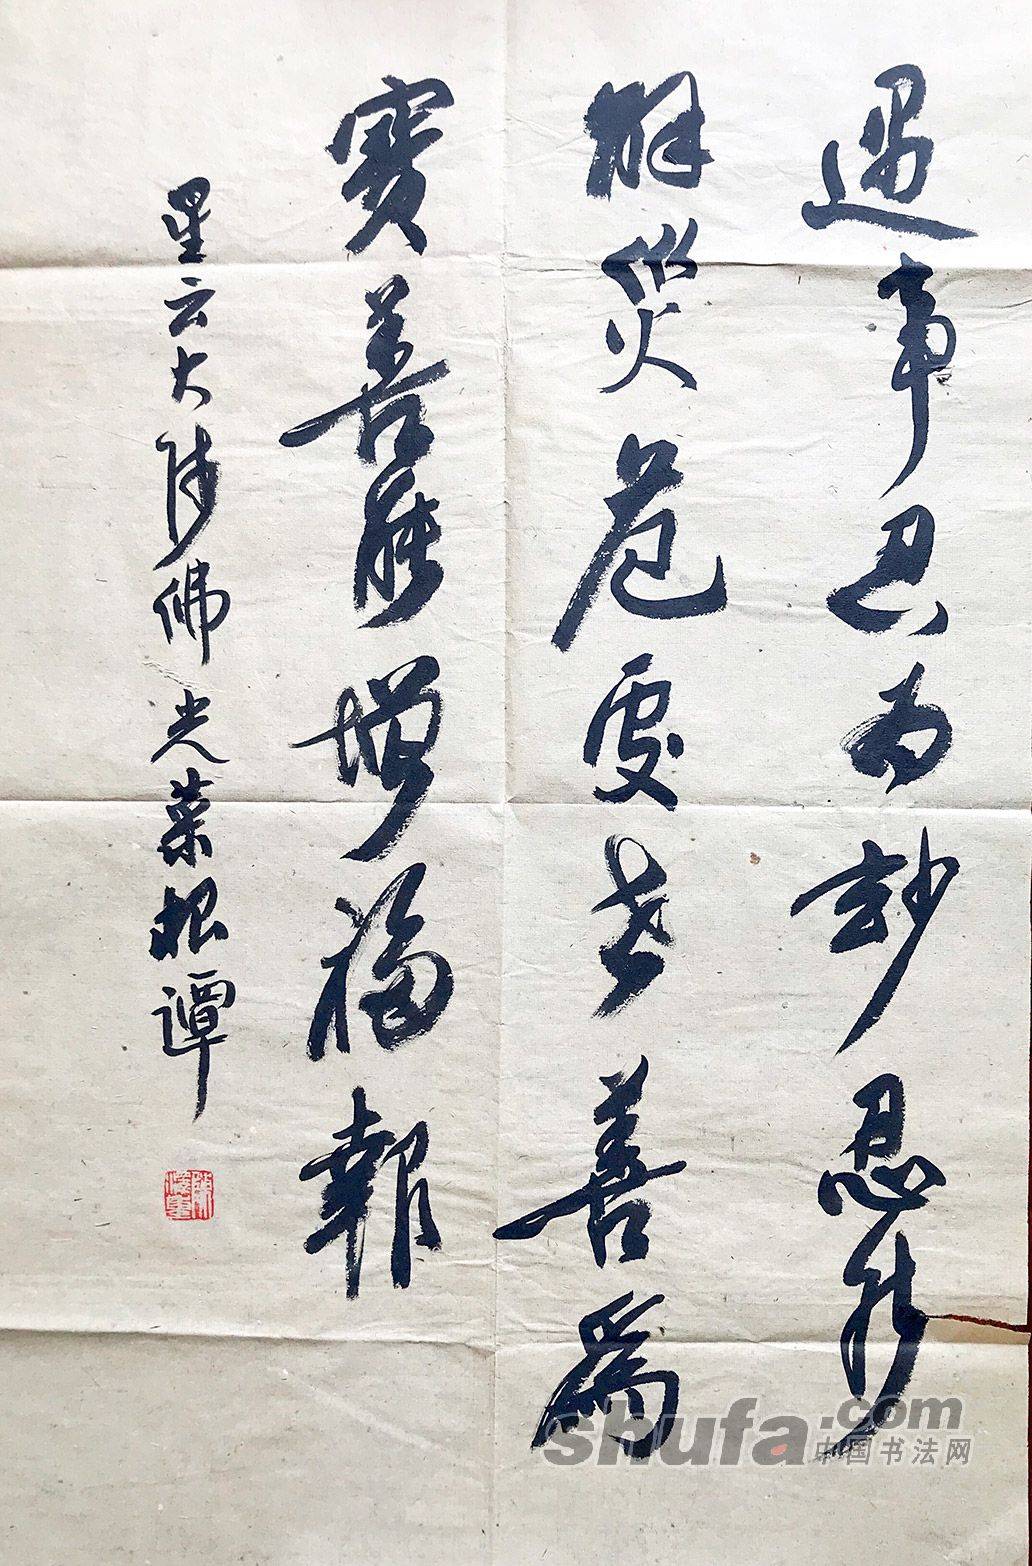 遇事忍为妙忍能
解災危處世善為
寶善能增福報
星云大师佛光菜根譚
shufa.com
中国书法网